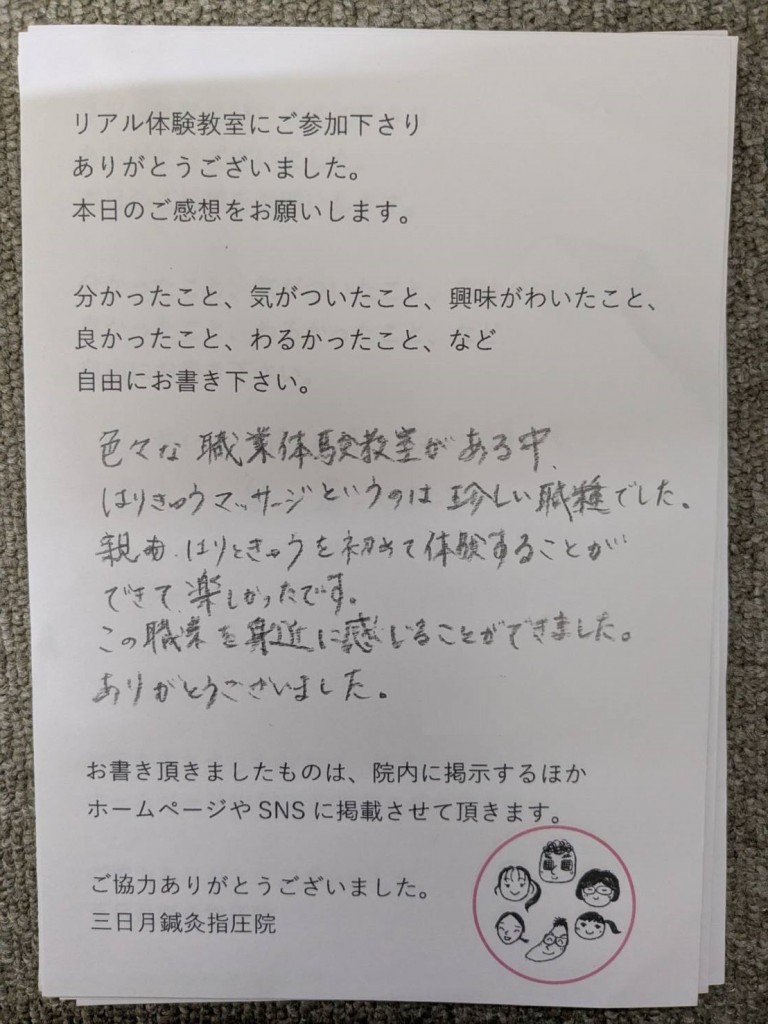 リアル体験教室にご参加下さり
ありがとうございました。
本日のご感想をお願いします。
分かったこと、気がついたこと、興味がわいたこと、
良かったこと、わるかったこと、など
自由にお書き下さい。
色々な職業体験教室がある中、
はりきゅうマッサージというのは珍しい職種でした。
親も、はりときゅうを初めて体験することが
できて、楽しかったです。
この職業を身近に感じることができました。
ありがとうございました。
お書き頂きましたものは、院内に掲示するほか
ホームページや SNS に掲載させて頂きます。
ご協力ありがとうございました。
三日月鍼灸指圧院